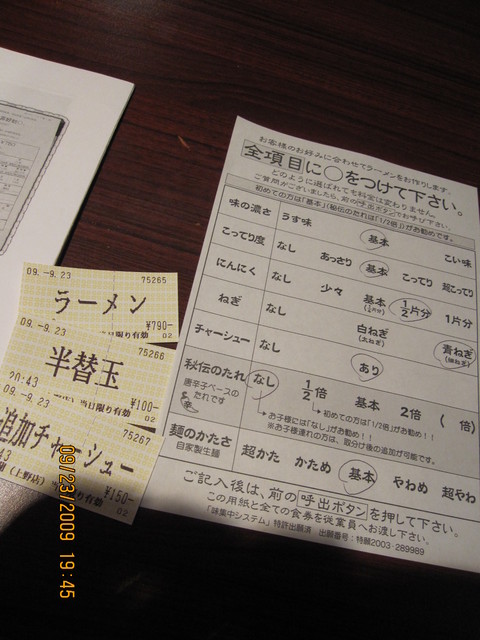 お客様のお好みに合わせてラーメンをお作りします。
全項目に○をつけて下さい。
どのように選ばれても料金は変わりません。
ご質問がございましたら、前の呼出ボタンでお呼び下さい。
初めての方は「基本」「秘伝のたれは「1/2倍」」がお勧めです。
味の濃さ うす味 基本 こい味
こってり度 なし あっさり 基本 こってり 超こってり
にんにく なし 少々 基本 1/2片分 1片分
ねぎ なし 白ねぎ 青ねぎ
チャーシュー なし あり
秘伝のたれ なし 1/2倍 基本 2倍 ( 倍)
唐辛子ベースの
たれです
初めての方は「1/2倍」がお勧め!!
お子様には「なし」がお勧め!!
※お子様連れの方は、取分け後の追加が可能です。
麺のかたさ 超かた かため 基本 やわめ 超やわ
自家製生麺
ご記入後は、前の呼出ボタンを押して下さい。
この用紙と全ての食券を従業員へお渡し下さい。
「味集中システム」特許出願済 出願番号:特願2003-289989
09.-9.23 75265
ラーメン
¥790-
当日限り有効 02
09.-9.23 75266
半替玉
20:43 ¥100-
当日限り有効 02
09.-9.23 75267
追加チャーシュー
43 ¥150-
(上野店) 当日限り有効 02
09/23/2009 19:45